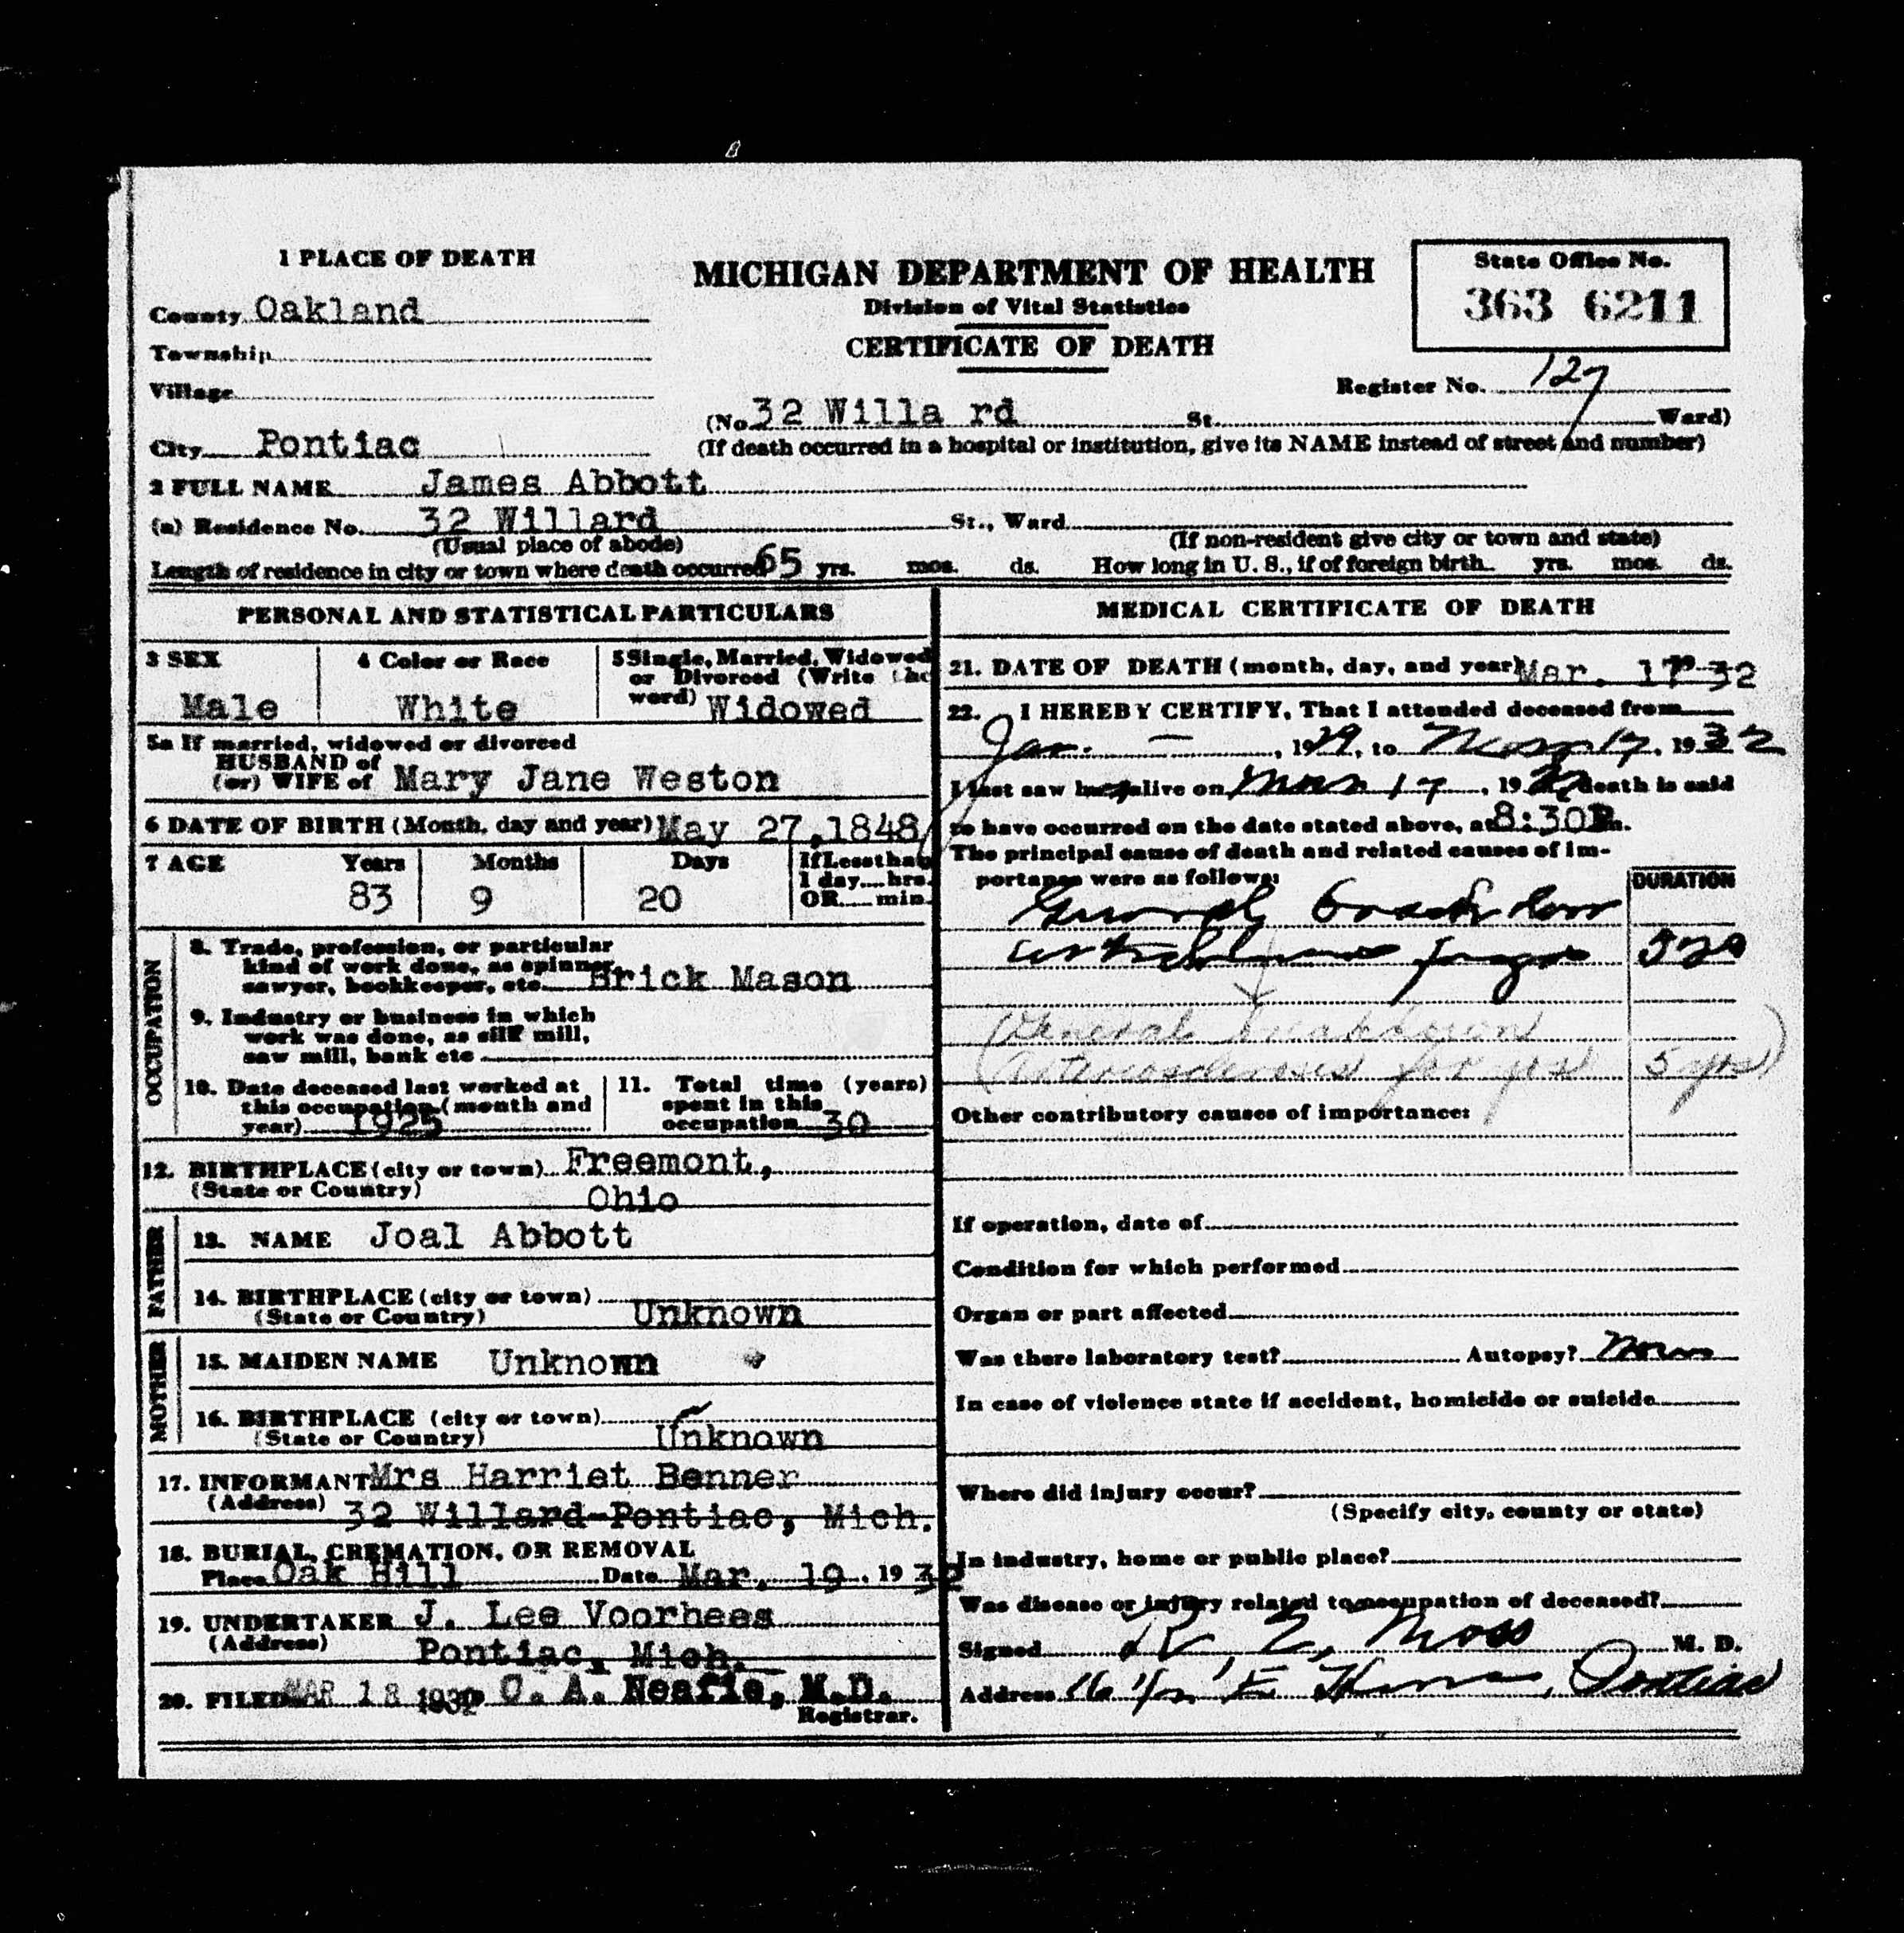 1 PLACE OF DEATH
County Oakland
Township
Village
City Pontiac
MICHIGAN DEPARTMENT OF HEALTH
Division of Vital Statistics
CERTIFICATE OF DEATH
State Office No.
363 6211
Register No. 127
(No. 32 Willa rd St. Ward)
(If death occurred in a hospital or institution, give its NAME instead of street and number)
2 FULL NAME James Abbott
(a) Residence No. 32 Willard St., Ward
(Usual place of abode) (If non-resident give city or town and state)
Length of residence in city or town where death occurred 65 yrs. mos. ds. How long in U. S., if of foreign birth. yrs. mos. ds.
PERSONAL AND STATISTICAL PARTICULARS
3 SEX
Male
4 Color or Race
White
5 Single, Married, Widowed
or Divorced (Write the
word) Widowed
5a If married, widowed or divorced
HUSBAND of
(or) WIFE of Mary Jane Weston
6 DATE OF BIRTH (Month, day and year) May 27, 1848
7 AGE Years Months Days If Less than
1 day....hrs.
83 9 20 OR....min.
OCCUPATION
8. Trade, profession, or particular
kind of work done, as spinner,
sawyer, bookkeeper, etc. Brick Mason
9. Industry or business in which
work was done, as silk mill,
saw mill, bank etc
10. Date deceased last worked at
this occupation (month and
year) 1925
11. Total time (years)
spent in this
occupation 30
12. BIRTHPLACE (city or town) Freemont,
(State or Country) Ohio
FATHER
13. NAME Joal Abbott
14. BIRTHPLACE (city or town)
(State or Country) Unknown
MOTHER
15. MAIDEN NAME Unknown
16. BIRTHPLACE (city or town)
(State or Country) Unknown
17. INFORMANT Mrs Harriet Benner
(Address) 32 Willard-Pontiac, Mich.
18. BURIAL, CREMATION, OR REMOVAL
Place Oak Hill Date Mar. 19, 1932
19. UNDERTAKER J. Lee Voorhees
(Address) Pontiac, Mich.
20. FILED MAR 18 1932 C. A. Neafie, M.D.
Registrar.
MEDICAL CERTIFICATE OF DEATH
21. DATE OF DEATH (month, day, and year) Mar. 17 1932
22. I HEREBY CERTIFY, That I attended deceased from
Jan. – , 1929, to Mar 17, 1932
I last saw h alive on Mar 17, 1932 death is said
to have occurred on the date stated above, at 8:30P m.
The principal cause of death and related causes of im-
portance were as follows:
DURATION
General breakdown
arteriosclerosis for yrs 5 yrs
(General breakdown
arteriosclerosis for yrs 5 yrs)
Other contributory causes of importance:
If operation, date of
Condition for which performed
Organ or part affected
Was there laboratory test? Autopsy? None
In case of violence state if accident, homicide or suicide
Where did injury occur?
(Specify city, county or state)
In industry, home or public place?
Was disease or injury related to occupation of deceased?
Signed Moss M. D.
Address 16 1/2 E Pontiac